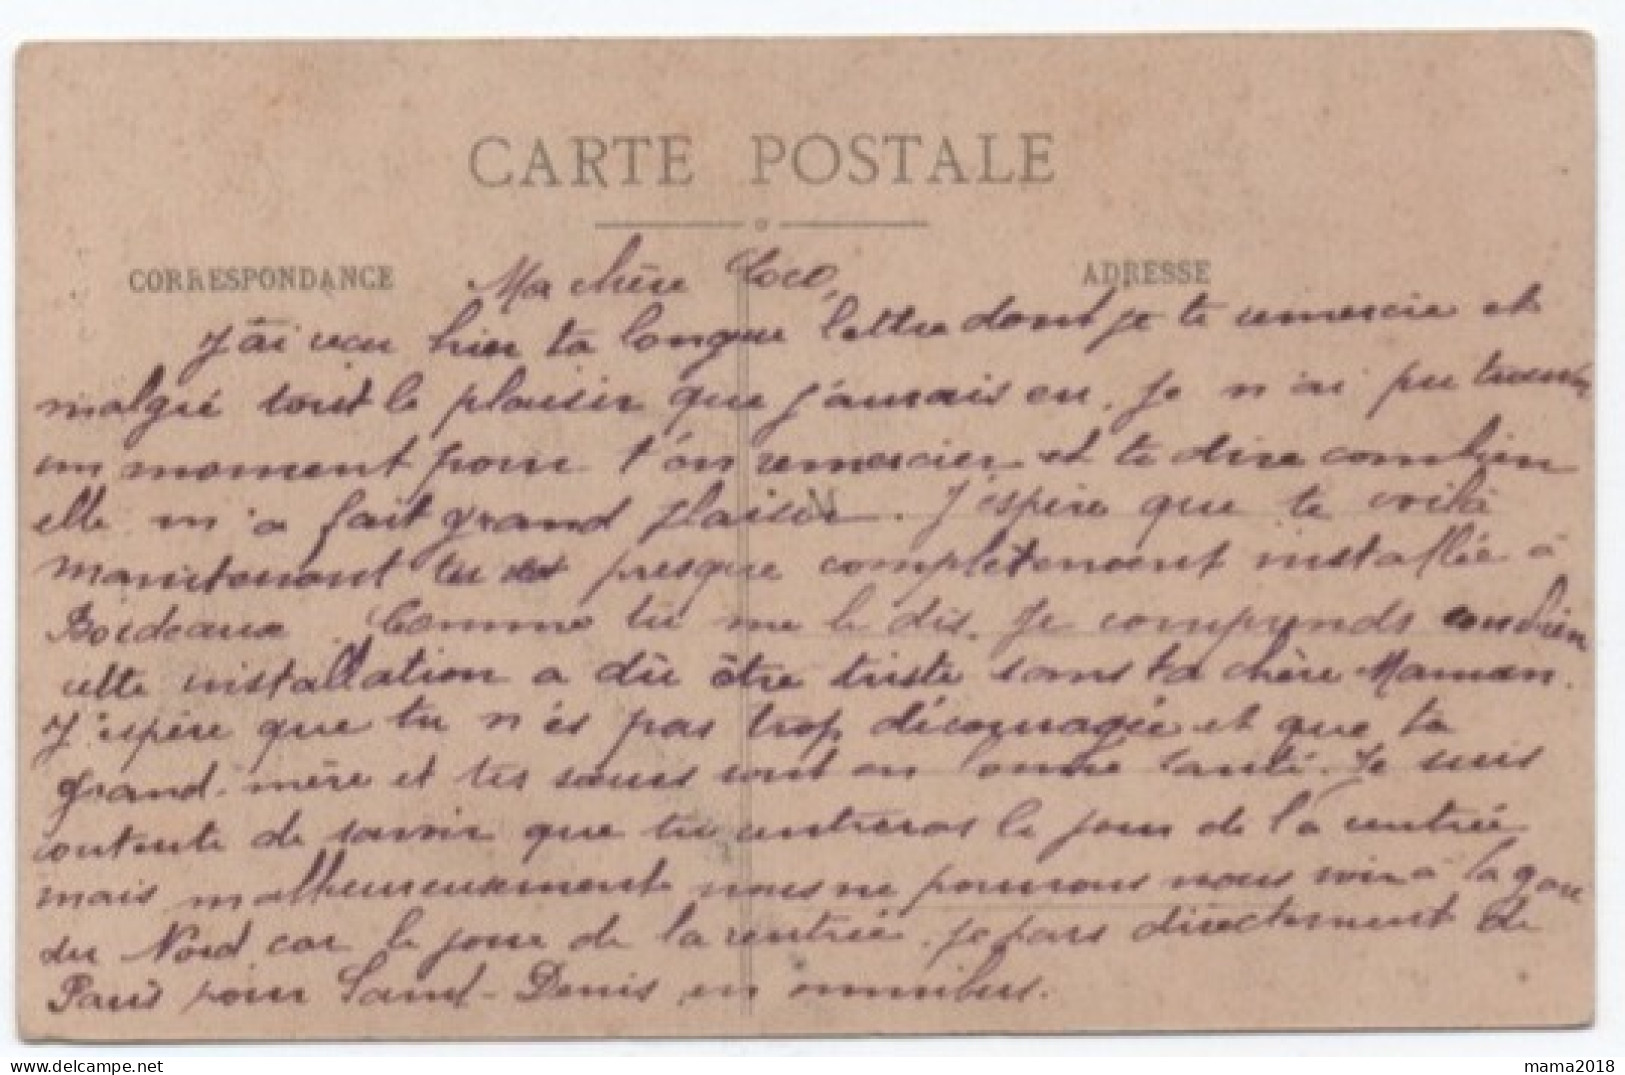 CARTE POSTALE
CORRESPONDANCE
ADRESSE
Ma chère Coco,
J'ai reçu hier ta longue lettre dont je te remercie et
malgré tout le plaisir que j'aurais eu, je n'ai pu trouver
un moment pour t'en remercier et te dire combien
elle m'a fait grand plaisir. J'espère que te voilà
maintenant tu es presque complètement installée à
Bordeaux. Comme tu me le dis, je comprends combien
cette installation a dû être triste sans ta chère Maman.
J'espère que tu n'es pas trop découragée et que ta
grand-mère et tes sœurs sont en bonne santé. Je suis
contente de savoir que tu rentreras le jour de la rentrée
mais malheureusement nous ne pourrons nous voir à la gare
du Nord car le jour de la rentrée, je pars directement de
Paris pour Saint-Denis en omnibus.
mama2018